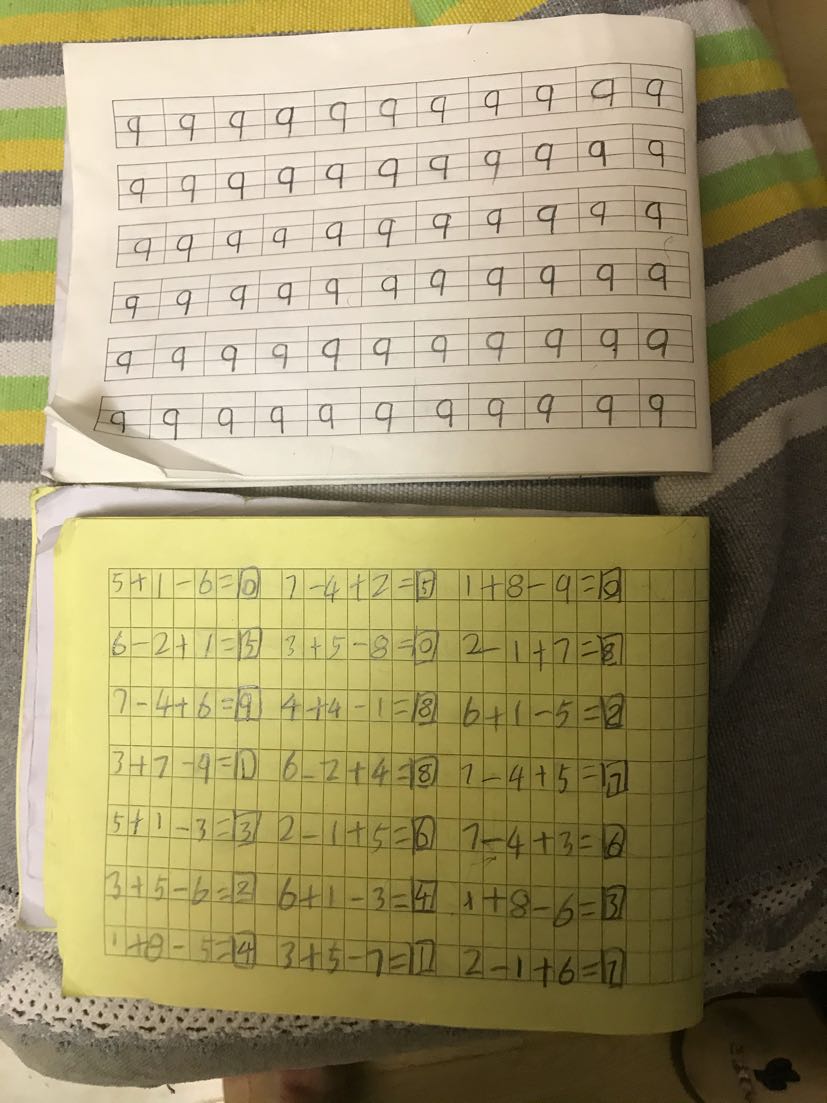 9 9 9 9 9 9 9 9 9 9 9
9 9 9 9 9 9 9 9 9 9 9
9 9 9 9 9 9 9 9 9 9 9
9 9 9 9 9 9 9 9 9 9 9
9 9 9 9 9 9 9 9 9 9 9
9 9 9 9 9 9 9 9 9 9 9
5+1-6=0 7-4+2=5 1+8-9=0
6-2+1=5 3+5-8=0 2-1+7=8
7-4+6=9 4+4-1=8 6+1-5=2
3+7-9=1 6-2+4=8 7-4+5=7
5+1-3=3 2-1+5=6 7-4+3=6
3+5-6=2 6+1-3=4 1+8-6=3
1+8-5=4 3+5-7=1 2-1+6=7